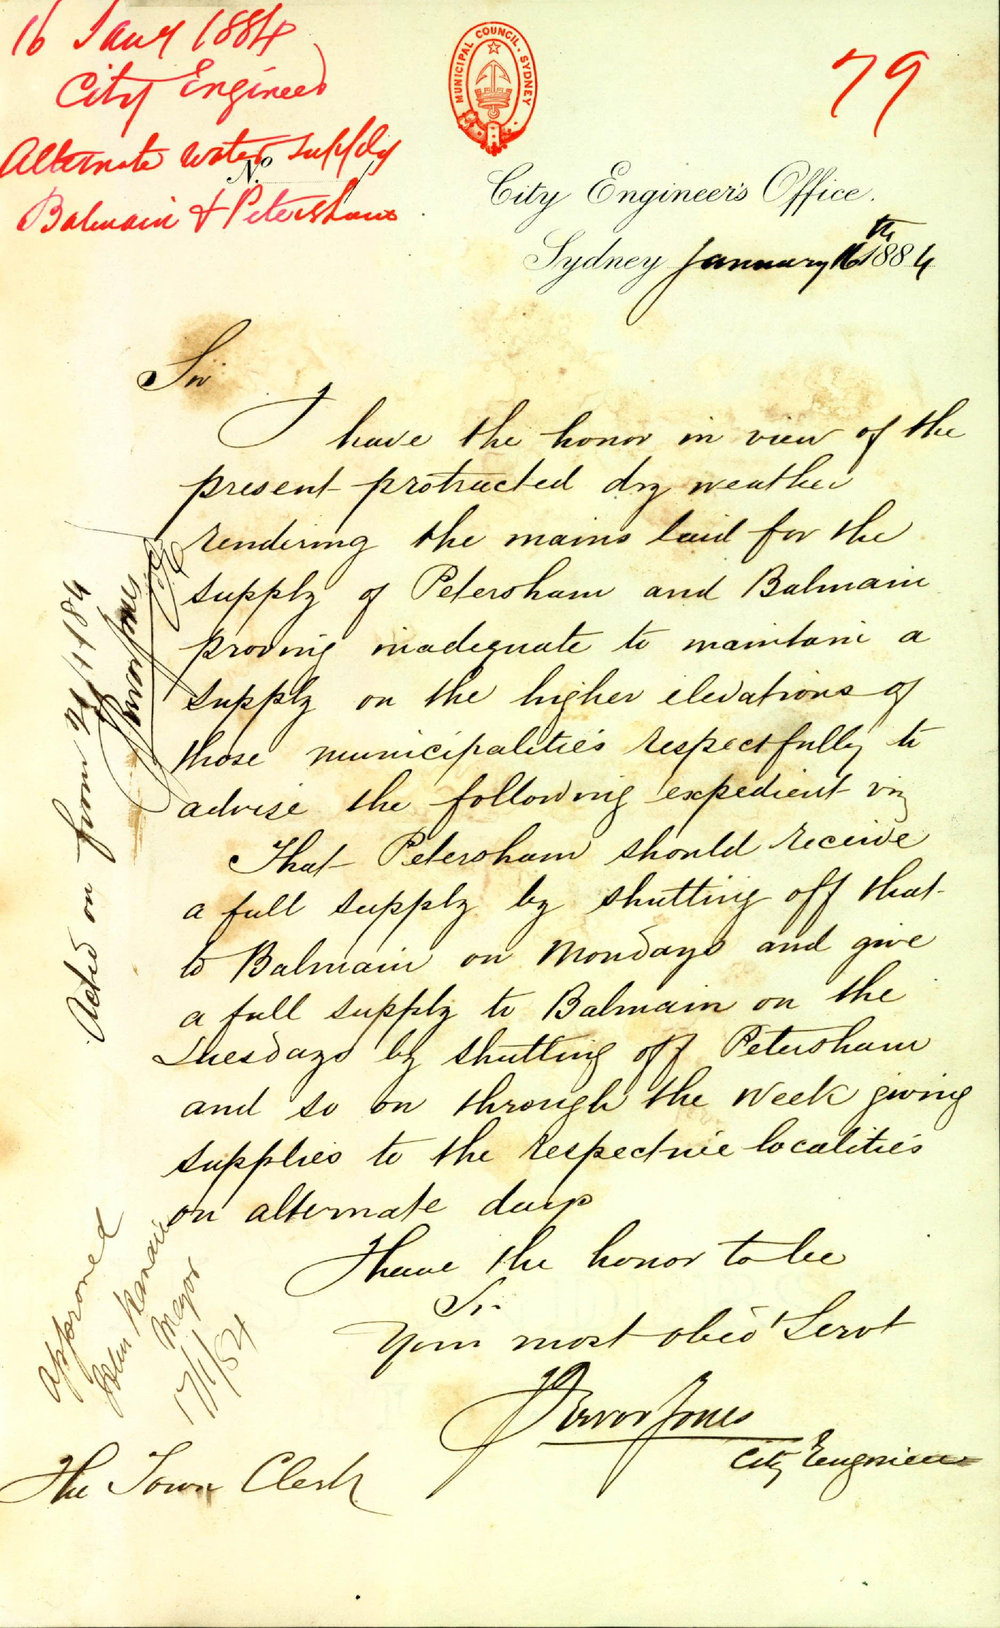 16 Jany 1884
City Engineer
Alternate water supply
Balmain & Petersham
79
MUNICIPAL COUNCIL · SYDNEY
No
City Engineer's Office.
Sydney January 16th 1884
Sir
I have the honor in view of the
present protracted dry weather
rendering the mains laid for the
supply of Petersham and Balmain
proving inadequate to maintain a
supply on the higher elevations of
those municipalities respectfully to
advise the following expedient viz
That Petersham should receive
a full supply by shutting off that
to Balmain on Mondays and give
a full supply to Balmain on the
Tuesdays by shutting off Petersham
and so on through the week giving
supplies to the respective localities
on alternate days
I have the honor to be
Sir
Your most obed Servt
Trevor Jones
City Engineer
The Town Clerk
Acted on from 21/1/84
Trevor Jones
C E
approved
John Hardie
Mayor
17/1/84